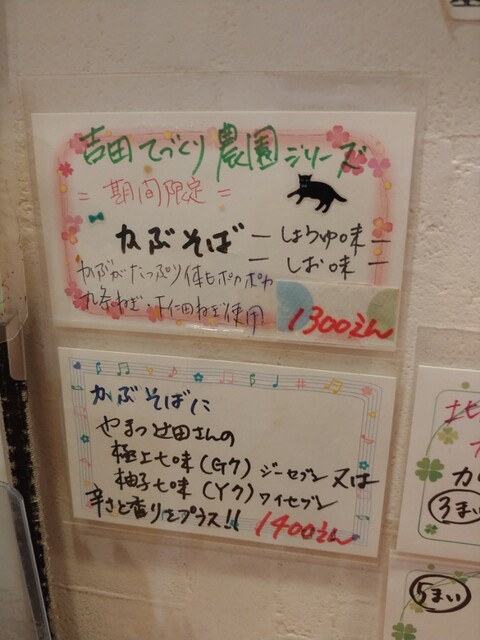 吉田てづくり農園シリーズ
＝期間限定＝
かぶそば ー しょうゆ味 ー
ー しお味 ー
かぶがたっぷり体もポカポカ
九条ねぎ・下仁田ねぎ使用
1300えん
かぶそばに
やまつ辻田さんの
極上七味(G7)ジーセブン 又は
柚子七味(Y7)ワイセブン
辛さと香りをプラス!!
1400えん
地
カ
3まい
5まい